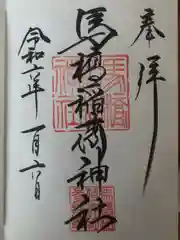 奉拝
馬橋稲荷神社
令和六年一月六日